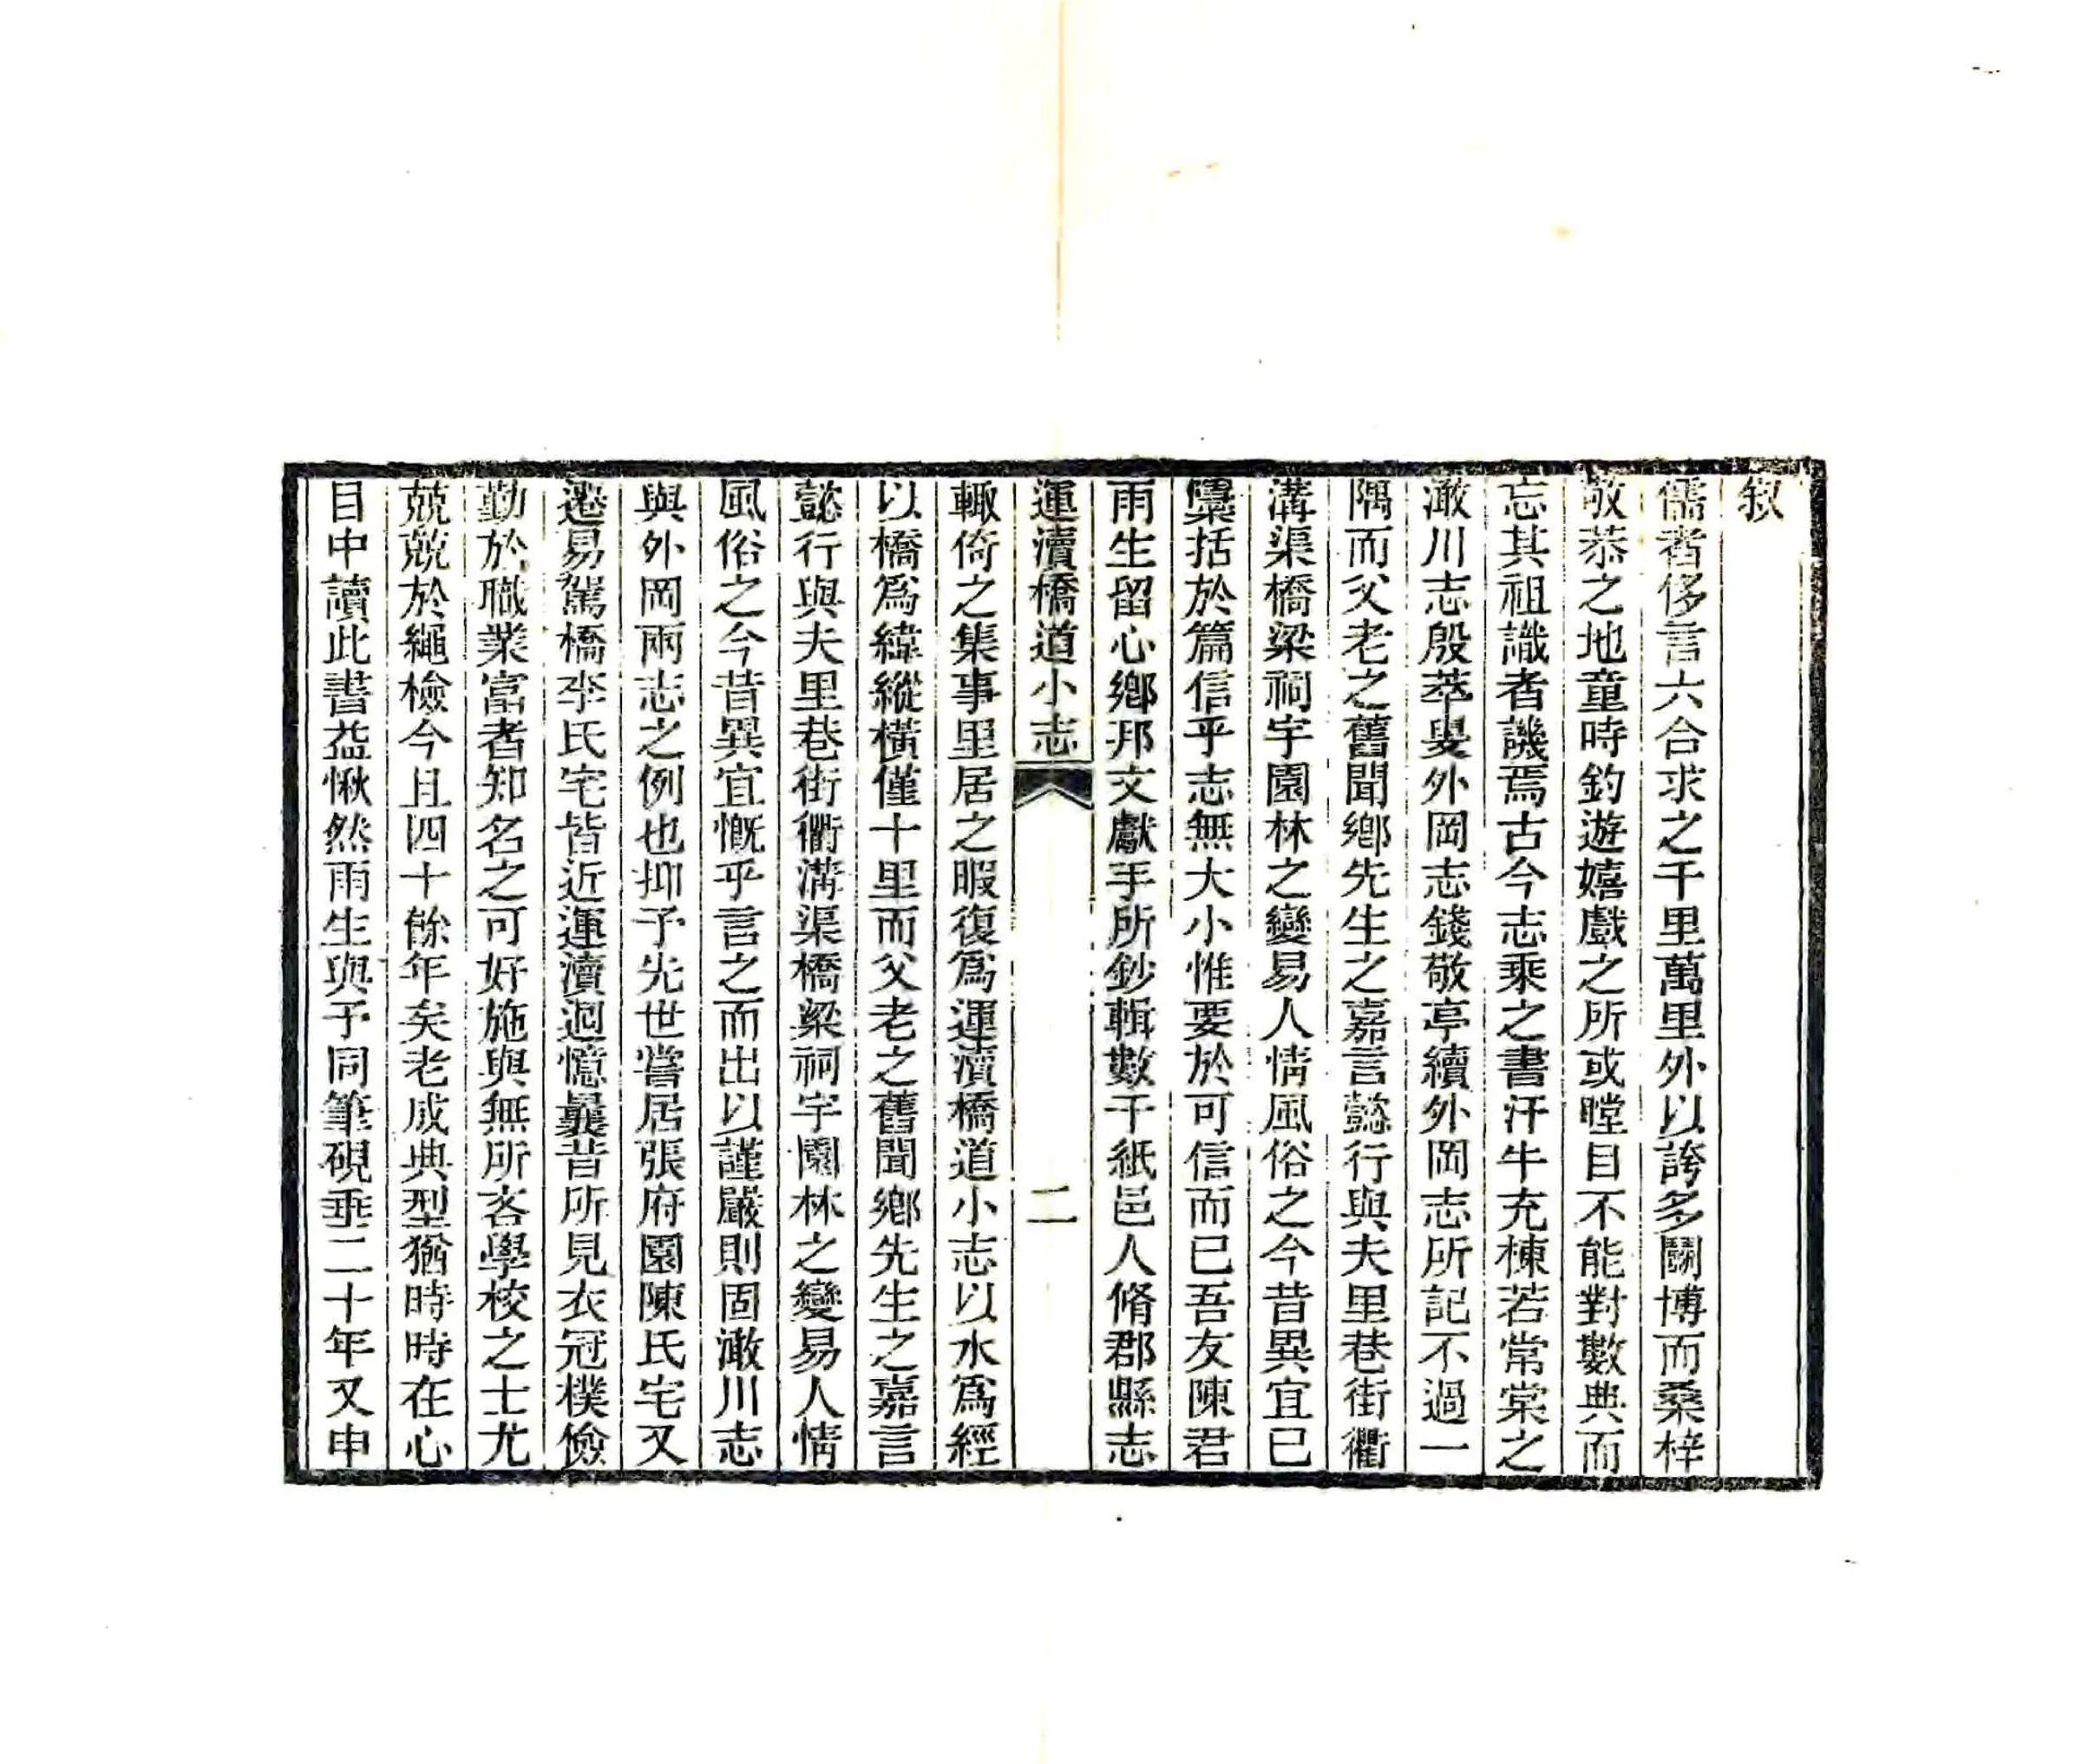 敘
儒者侈言六合求之千里萬里外以誇多鬬博而桑梓
敬恭之地童時釣遊嬉戲之所或瞠目不能對數典而
忘其祖識者譏焉古今志乘之書汗牛充棟若常棠之
澉川志殷萃叟外岡志錢敬亭續外岡志所記不過一
隅而父老之舊聞鄉先生之嘉言懿行與夫里巷街衢
溝渠橋梁祠宇園林之變易人情風俗之今昔異宜已
櫽括於篇信乎志無大小惟要於可信而已吾友陳君
雨生留心鄉邦文獻手所鈔輯數千紙邑人脩郡縣志
運瀆橋道小志
二
輒倚之集事里居之暇復爲運瀆橋道小志以水爲經
以橋爲緯縱橫僅十里而父老之舊聞鄉先生之嘉言
懿行與夫里巷街衢溝渠橋梁祠宇園林之變易人情
風俗之今昔異宜慨乎言之而出以謹嚴則固澉川志
與外岡兩志之例也抑予先世嘗居張府園陳氏宅又
遷易駕橋李氏宅皆近運瀆迴憶曩昔所見衣冠樸儉
勤於職業富者知名之可好施與無所吝學校之士尤
兢兢於繩檢今且四十餘年矣老成典型猶時時在心
目中讀此書益愀然雨生與予同筆硯垂二十年又申